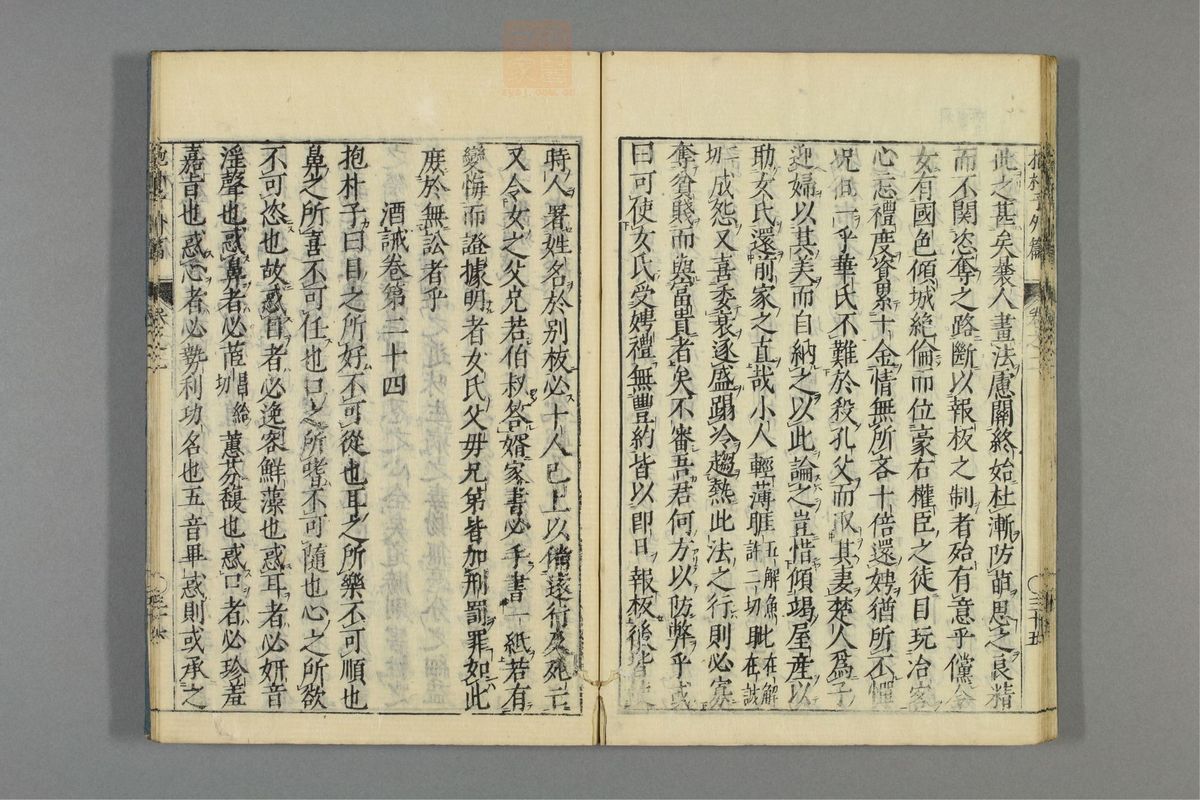 此之甚矣裴人畫法慮關終始杜漸防萌思之良精
而不關恣奪之路斷以報板之制者殆有意乎儻令
女有國色傾城絶倫而位豪右權臣之徒目玩冶容
心忘禮度資累十金情無所吝十倍還娉猶所不憚
況但一乎華氏不難於殺孔父而取其妻楚人為子
迎婦以其美而自納之以此論之豈惜傾竭居産以
助女氏還前家之直哉小人輕薄睚五解魚眦在解
切成怨又喜委衰逐盛蹋冷趨熱此法之行則必
奪貧賤而與富貴者矣不審吾君何方以防弊乎或
曰可使女氏受娉禮無豐約皆以即日報板後皆使
時人署姓名於别板必十人已上以備遠行及死亡
又令女之父兄若伯叔答婿家書必手書一紙若有
變悔而證據明者女氏父母兄弟皆加刑罰罪如此
庶於無訟者乎
酒誡卷第二十四
抱朴子曰目之所好不可從也耳之所樂不可順也
鼻之所喜不可任也口之所嗜不可隨也心之所欲
不可恣也故惑目者必逸容鮮藻也惑耳者必妍音
淫聲也惑鼻者必茝昌紿切蕙芬馥也惑口者必珍羞
嘉旨也惑心者必勢利功名也五音畢惑則或承之